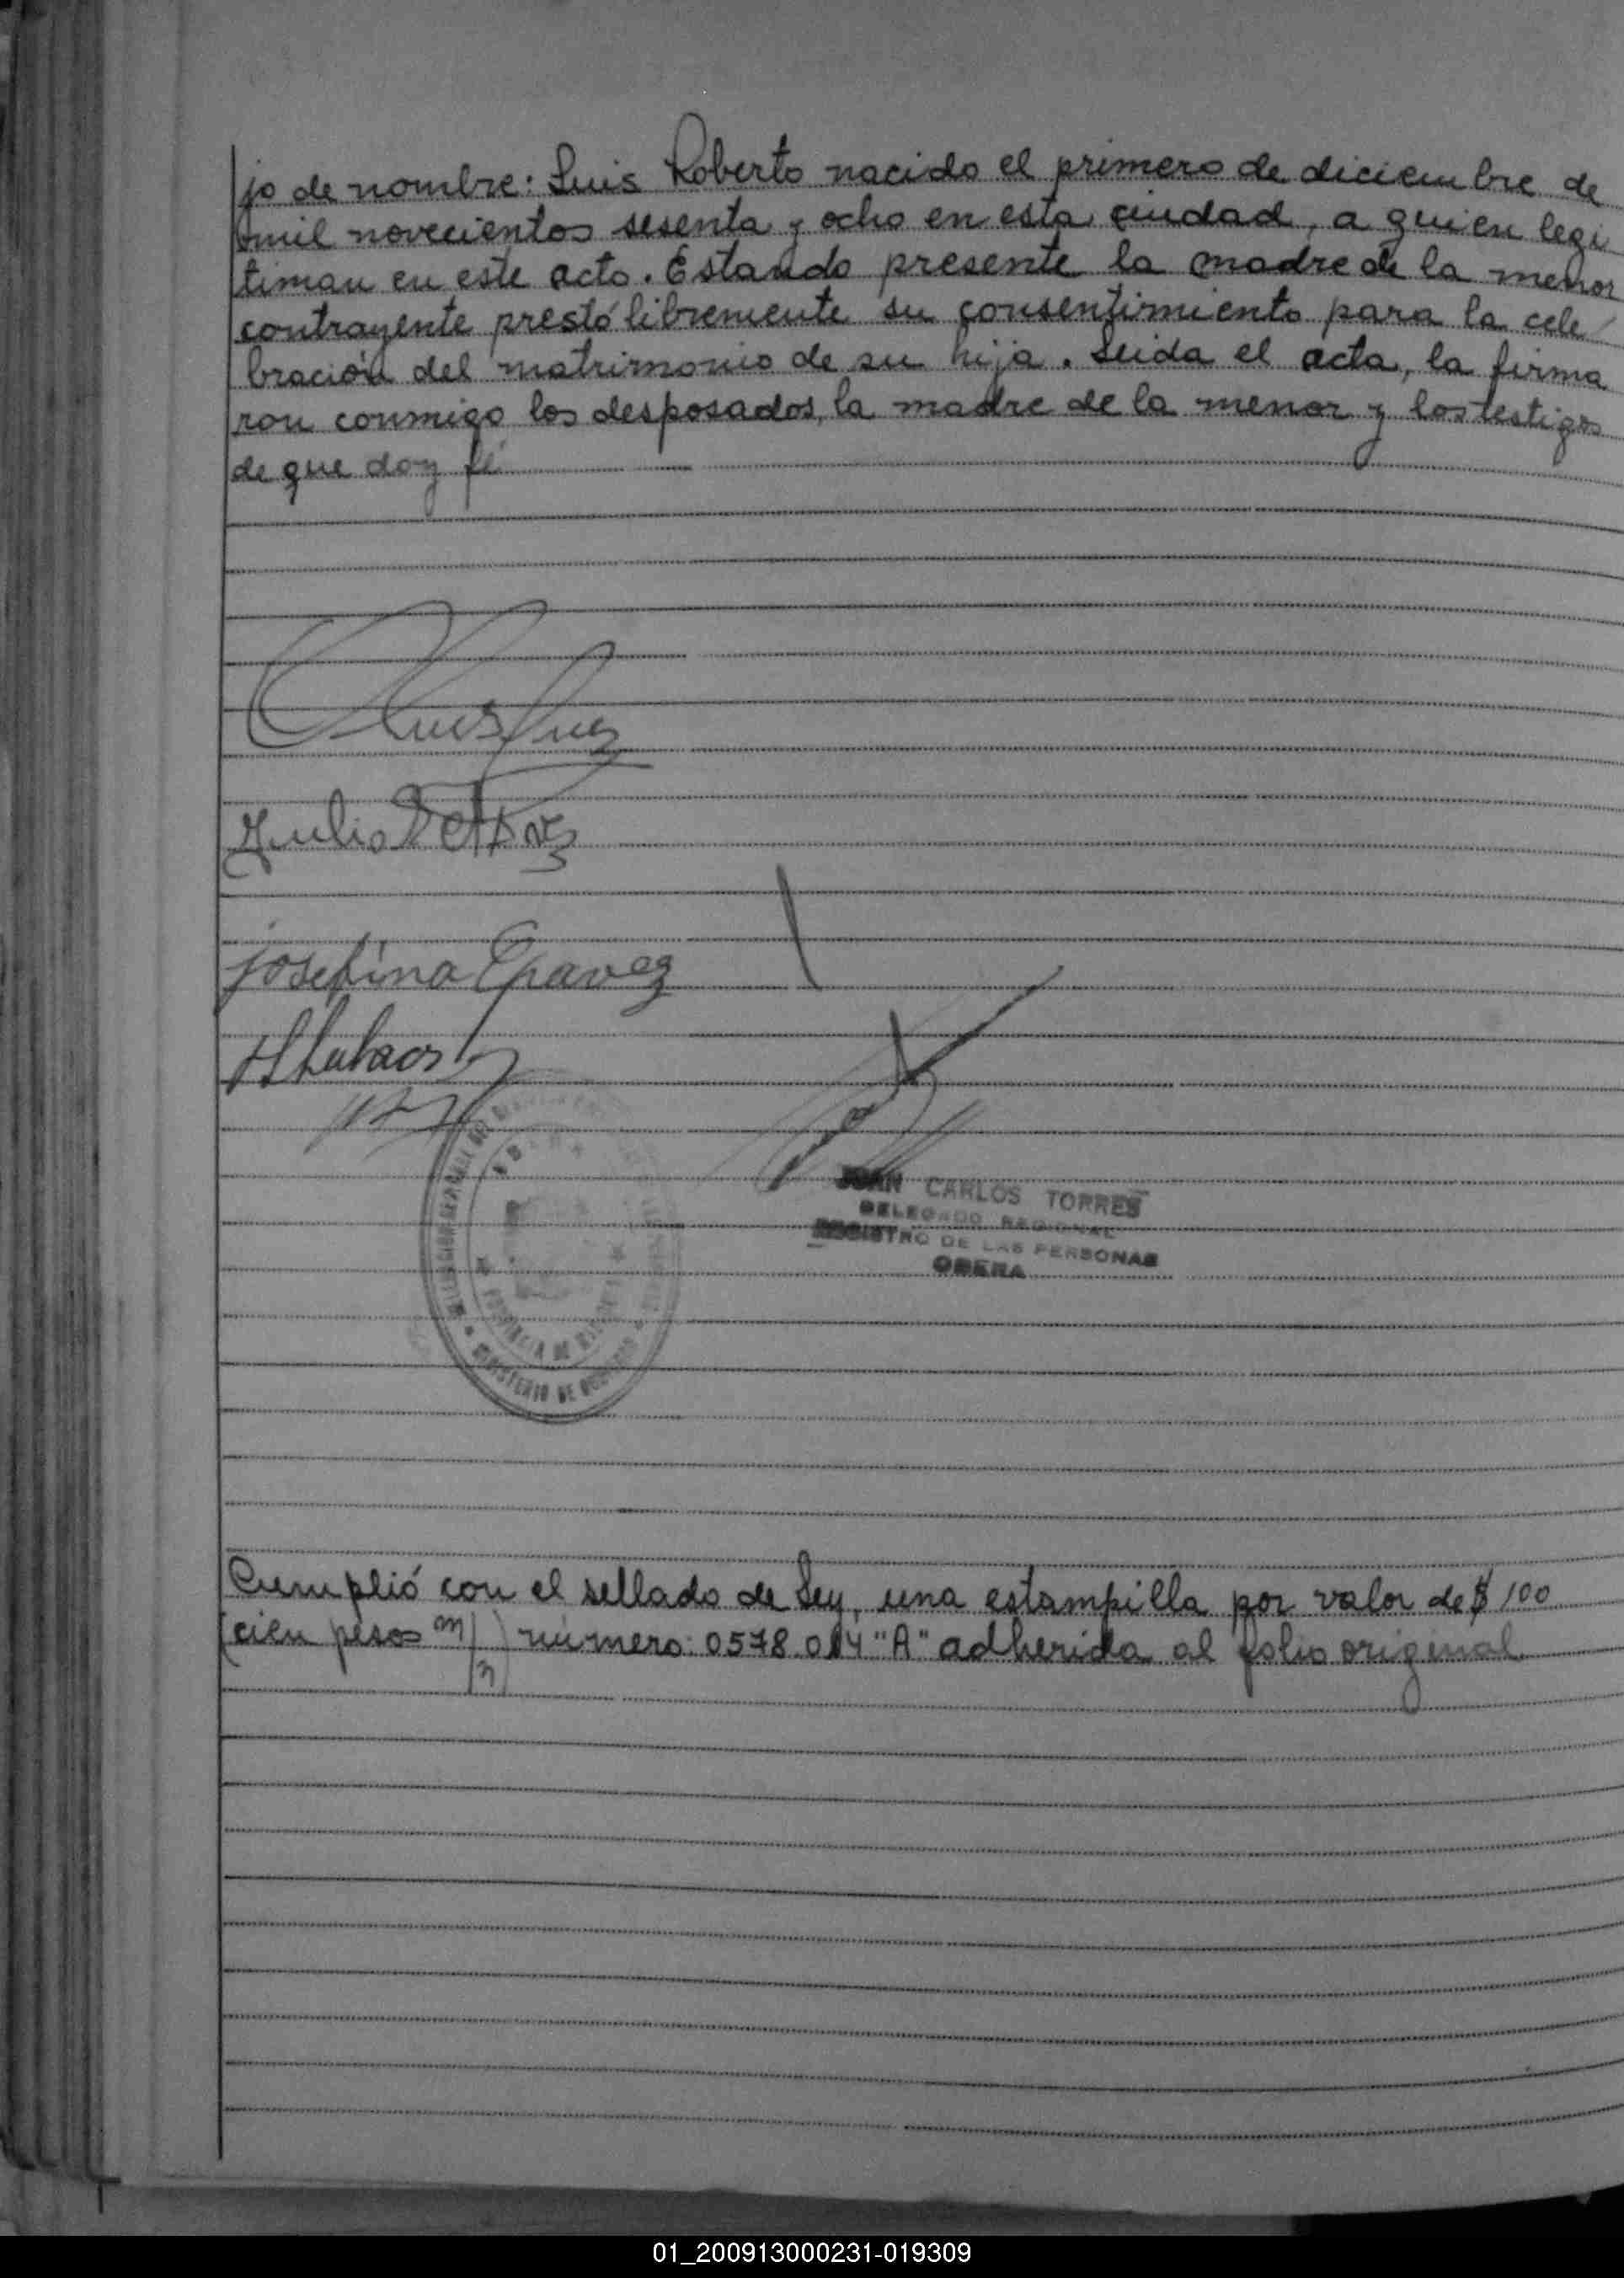 jo de nombre: Luis Roberto nacido el primero de diciembre de
mil novecientos sesenta y ocho en esta ciudad, a quien legi
timan en este acto. Estando presente la madre de la menor
contrayente prestó libremente su consentimiento para la cele
bración del matrimonio de su hija. Leida el acta, la firma
ron conmigo los desposados, la madre de la menor y los testigos
de que doy fé
Luis
Julio
Josefina Chavez
JUAN CARLOS TORRES
DELEGADO REGIONAL
REGISTRO DE LAS PERSONAS
OBERA
PROVINCIA DE
MINISTERIO DE
Cumplió con el sellado de Ley, una estampilla por valor de $ 100
(cien pesos m/n) número: 0578.014 "A" adherida al folio original
01_200913000231-019309